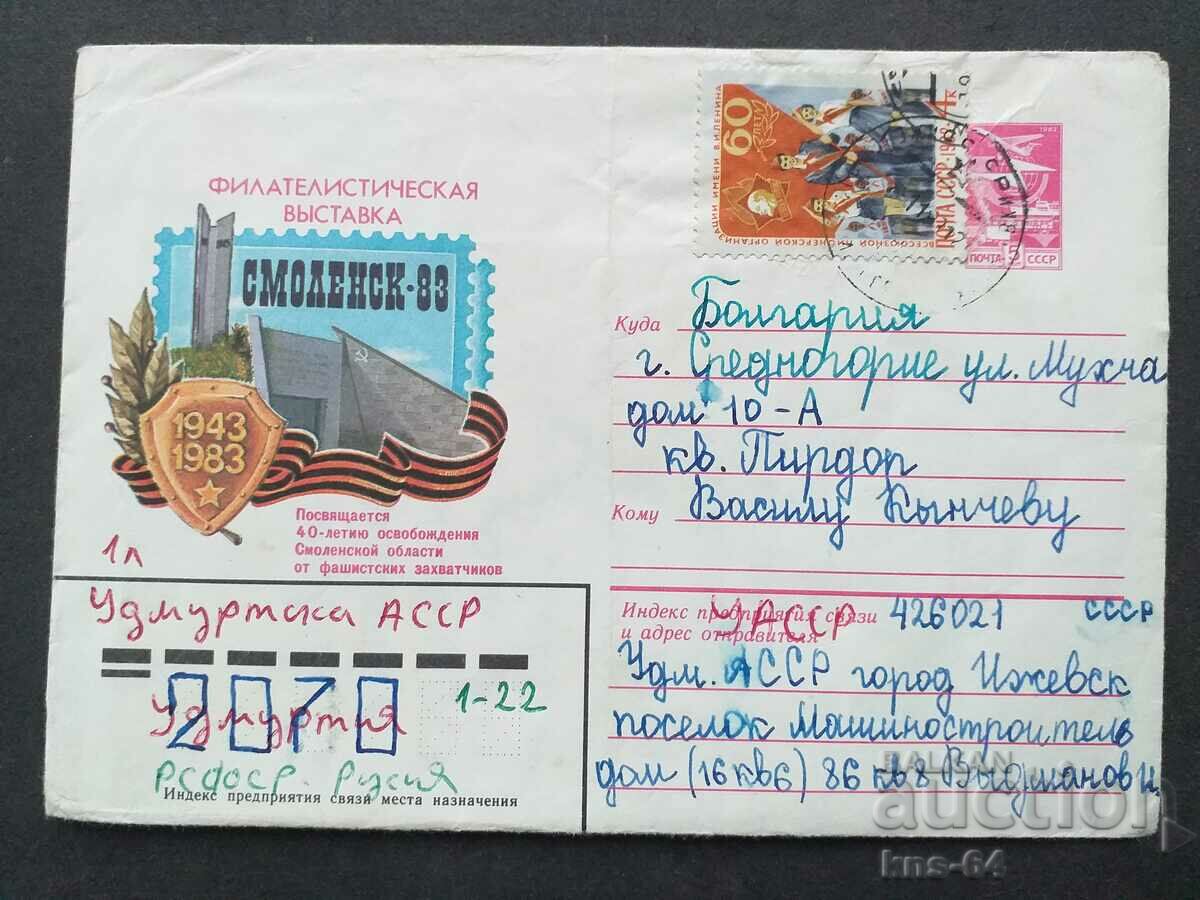 ФИЛАТЕЛИСТИЧЕСКАЯ
ВЫСТАВКА
СМОЛЕНСК-83
1943
1983
Посвящается
40-летию освобождения
Смоленской области
от фашистских захватчиков
60
ЛЕТ
ВСЕСОЮЗНОЙ ПИОНЕРСКОЙ ОРГАНИЗАЦИИ ИМЕНИ В.И.ЛЕНИНА
ПОЧТА СССР·1982·4к
1982
ПОЧТА 5 СССР
Куда Болгария
г. Средногорие ул. Мухча
дом 10-А
кв. Пирдор
Кому Василу Кынчеву
1л
Удмуртска АССР
2070
1-22
Удмуртия
РСФСР. Русия
Индекс предприятия связи места назначения
Индекс предприятия связи
и адрес отправителя
УАССР 426021 СССР
Удм. АССР город Ижевск
поселок Машиностроитель
дом (16 кв 6) 86 кв 8
BALKAN
auction
kns-64